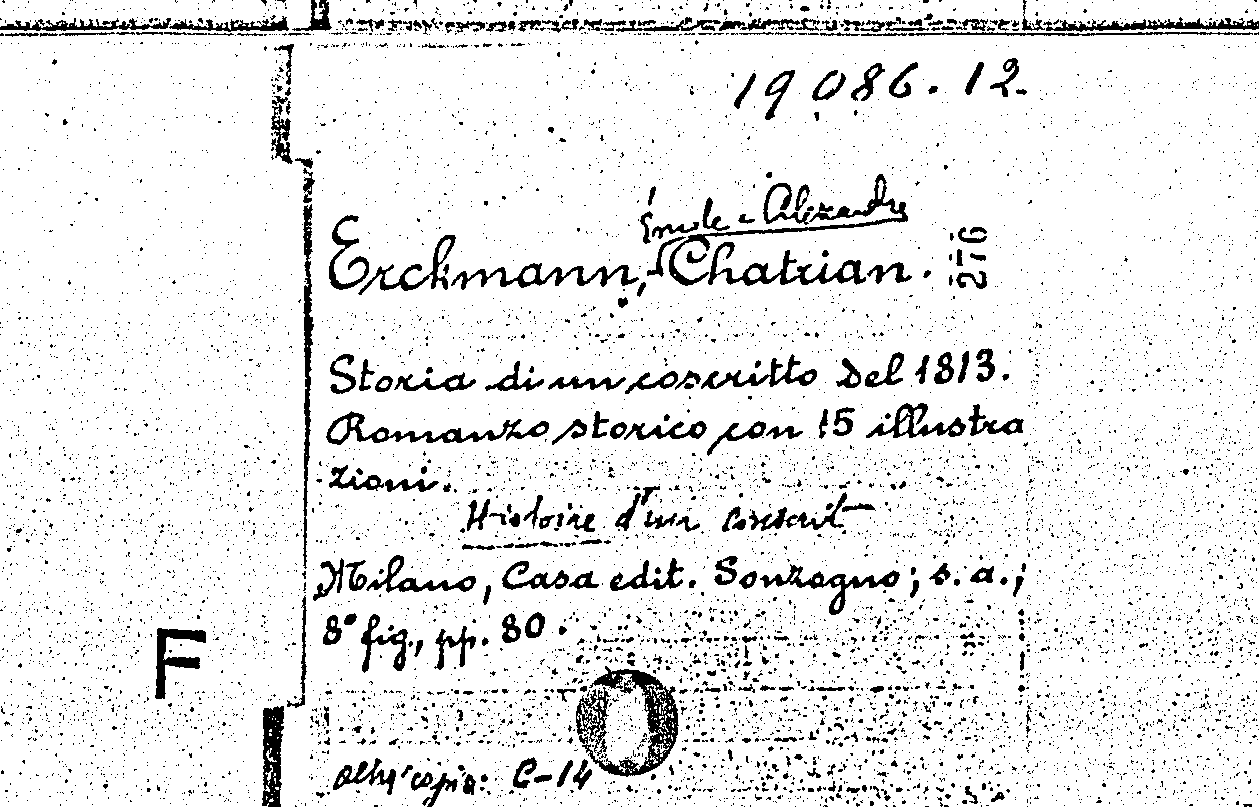 19086.12.
Émile e Alexandre
Erckmann,-Chatrian.
276
Storia di un coscritto del 1813.
Romanzo storico con 15 illustra
zioni.
Histoire d'un conscrit
Milano, Casa edit. Sonzogno; s. a.;
8° fig., pp. 80.
F
altra copia: C-14